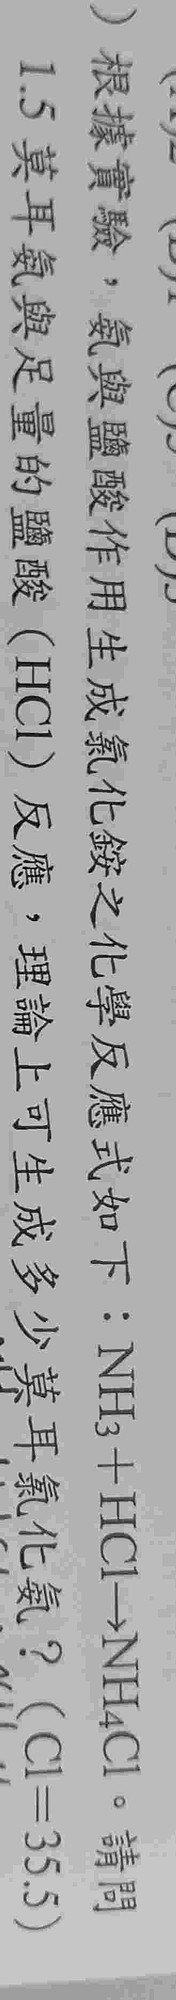 ) 根據實驗，氨與鹽酸作用生成氯化銨之化學反應式如下：NH₃＋HCl→NH₄Cl。請問
1.5 莫耳氨與足量的鹽酸（HCl）反應，理論上可生成多少莫耳氯化氨？（Cl＝35.5）